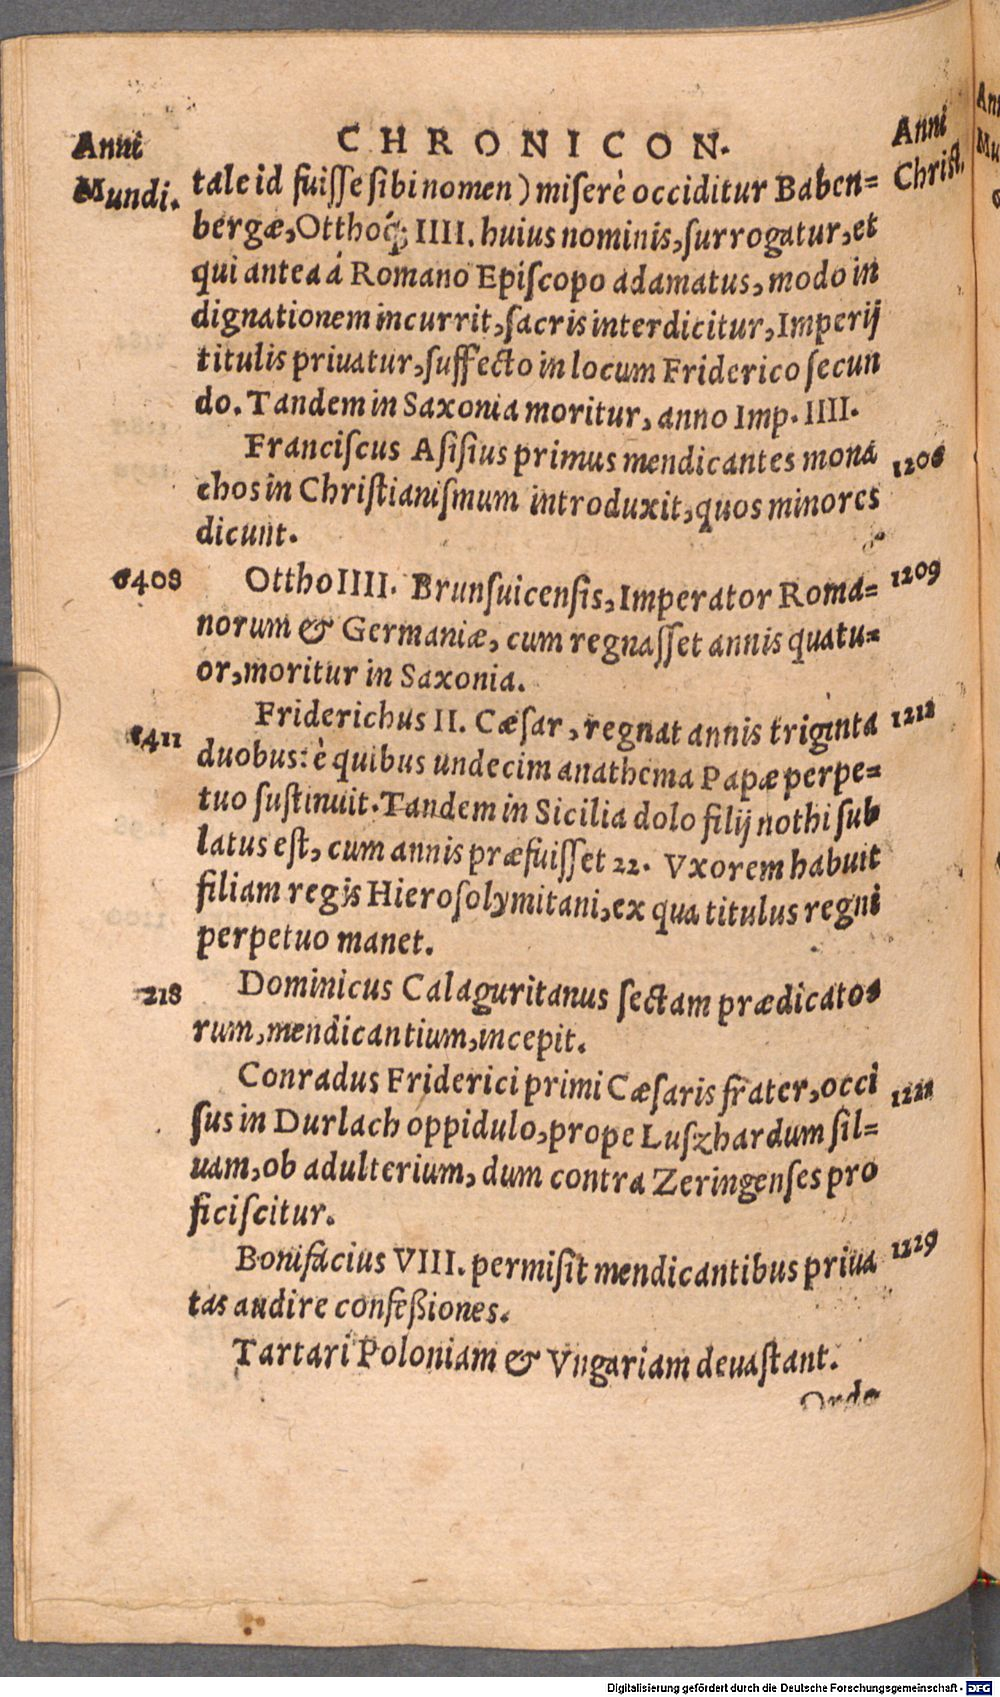 Anni CHRONICON. Anni
Mundi. tale id fuisse sibi nomen) miserè occiditur Baben= Christ.
bergæ, Otthoq́; IIII. huius nominis, surrogatur, et
qui antea á Romano Episcopo adamatus, modo in
dignationem incurrit, sacris interdicitur, Imperij
titulis priuatur, suffecto in locum Friderico secun
do. Tandem in Saxonia moritur, anno Imp. IIII.
Franciscus Asisius primus mendicantes mona 1208
chos in Christianismum introduxit, quos minores
dicunt.
6408 Ottho IIII. Brunsuicensis, Imperator Roma= 1209
norum & Germaniæ, cum regnasset annis quatu=
or, moritur in Saxonia.
6411 Friderichus II. Cæsar, regnat annis triginta 1212
duobus: è quibus undecim anathema Papæ perpe=
tuo sustinuit. Tandem in Sicilia dolo filij nothi sub
latus est, cum annis præfuisset 22. Vxorem habuit
filiam regis Hierosolymitani, ex qua titulus regni
perpetuo manet.
218 Dominicus Calaguritanus sectam prædicato
rum, mendicantium, incepit.
Conradus Friderici primi Cæsaris frater, occi 1221
sus in Durlach oppidulo, prope Luszhardum sil=
uam, ob adulterium, dum contra Zeringenses pro
ficiscitur.
Bonifacius VIII. permisit mendicantibus priua 1229
tas audire confeßiones.
Tartari Poloniam & Vngariam deuastant.
Ordo
Digitalisierung gefördert durch die Deutsche Forschungsgemeinschaft - DFG